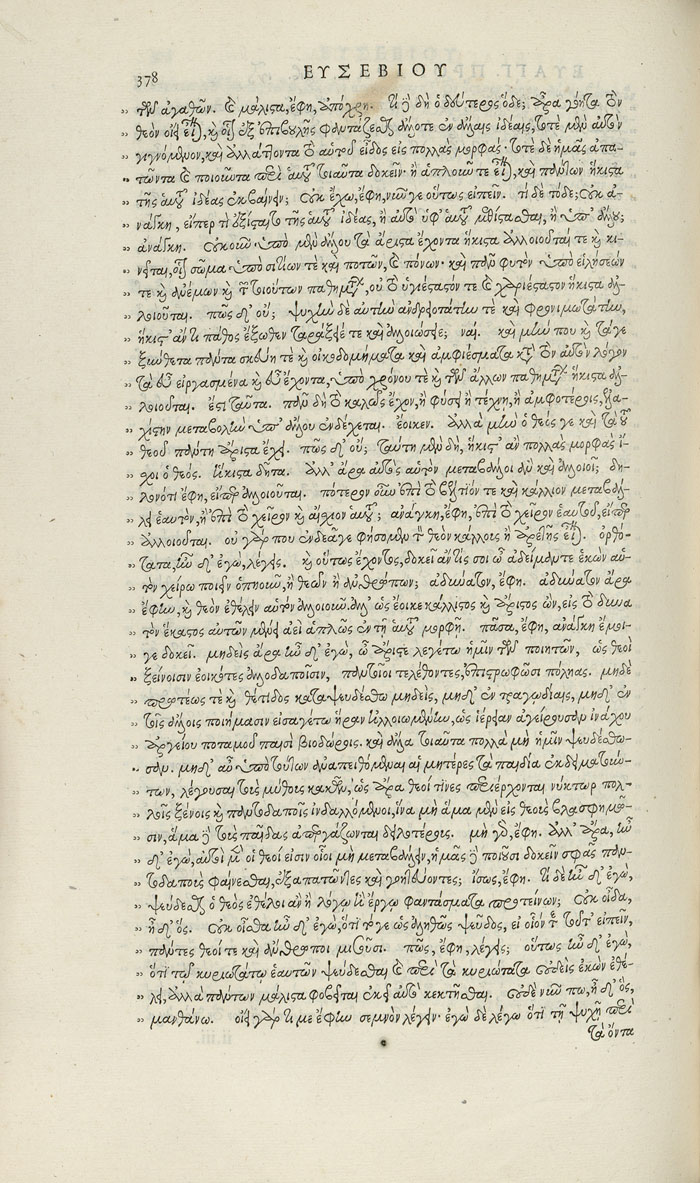 378 ΕΥΣΕΒΙΟΥ
τῶν ἀγαθῶν. καὶ μάλιστα, ἔφη, ἀπόχρη. τί δὲ δὴ ὁ δεύτερος ὅδε; ἆρα γόητα τὸν
θεὸν οἴει εἶναι, καὶ οἷον ἐξ ἐπιβουλῆς φαντάζεσθαι ἄλλοτε ἐν ἄλλαις ἰδέαις, τοτὲ μὲν αὐτὸν
γιγνόμενον, καὶ ἀλλάττοντα τὸ αὑτοῦ εἶδος εἰς πολλὰς μορφάς· τοτὲ δὲ ἡμᾶς ἀπα-
τῶντα καὶ ποιοῦντα περὶ αὑτοῦ τοιαῦτα δοκεῖν· ἢ ἁπλοῦν τε εἶναι, καὶ πάντων ἥκιστα
τῆς αὑτοῦ ἰδέας ἐκβαίνειν; οὐκ ἔχω, ἔφη, νῦν γε οὕτως εἰπεῖν. τί δὲ τόδε; οὐκ ἀ-
νάγκη, εἴπερ τι ἐξίσταιτο τῆς αὑτοῦ ἰδέας, ἢ αὐτὸ ὑφ' αὑτοῦ μεθίστασθαι, ἢ ὑπ' ἄλλου;
ἀνάγκη. οὐκοῦν ὑπὸ μὲν ἄλλου τὰ ἄριστα ἔχοντα ἥκιστα ἀλλοιοῦταί τε καὶ κι-
νεῖται, οἷον σῶμα ὑπὸ σιτίων τε καὶ ποτῶν, καὶ πόνων· καὶ πᾶν φυτὸν ὑπὸ εἱλήσεών
τε καὶ ἀνέμων καὶ τῶν τοιούτων παθημάτων, οὐ τὸ ὑγιέστατόν τε καὶ ἥκιστα ἀλ-
λοιοῦται. πῶς δ' οὔ; ψυχὴν δὲ αὐτὴν ἀνδρειοτάτην τε καὶ φρονιμωτάτην,
ἥκιστ' ἄν τι πάθος ἔξωθεν ταράξειέ τε καὶ ἀλλοιώσειε; ναί. καὶ μήν που καὶ τά γε
ξύνθετα πάντα σκεύη τε καὶ οἰκοδομήματα καὶ ἀμφιέσματα κατὰ τὸν αὐτὸν λόγον
τὰ εὖ εἰργασμένα καὶ εὖ ἔχοντα, ὑπὸ χρόνου τε καὶ τῶν ἄλλων παθημάτων ἥκιστα ἀλ-
λοιοῦται. ἔστι ταῦτα. πᾶν δὴ τὸ καλῶς ἔχον, ἢ φύσει ἢ τέχνῃ, ἢ ἀμφοτέροις, ἐλα-
χίστην μεταβολὴν ὑπ' ἄλλου ἐνδέχεται. ἔοικεν. ἀλλὰ μὴν ὁ θεός γε καὶ τὰ τοῦ
θεοῦ πάντη ἄριστα ἔχει. πῶς δ' οὔ; ταύτῃ μὲν δὴ, ἥκιστ' ἂν πολλὰς μορφὰς ἴ-
σχοι ὁ θεός. ἥκιστα δῆτα. ἀλλ' ἄρα αὐτὸς αὑτὸν μεταβάλλοι ἂν καὶ ἀλλοιοῖ; δη-
λονότι ἔφη, εἴπερ ἀλλοιοῦται. πότερον οὖν ἐπὶ τὸ βέλτιόν τε καὶ κάλλιον μεταβάλ-
λει ἑαυτὸν, ἢ ἐπὶ τὸ χεῖρον καὶ αἴσχιον αὑτοῦ; ἀνάγκη, ἔφη, ἐπὶ τὸ χεῖρον ἑαυτοῦ, εἴπερ
ἀλλοιοῦται. οὐ γάρ που ἐνδεᾶ γε φήσομεν τὸν θεὸν κάλλους ἢ ἀρετῆς εἶναι. ὀρθό-
τατα, ἦν δ' ἐγὼ, λέγεις. καὶ οὕτως ἔχοντος, δοκεῖ ἄν τίς σοι ὦ ἀδείμαντε ἑκὼν αὑ-
τὸν χείρω ποιεῖν ὁπηοῦν, ἢ θεῶν ἢ ἀνθρώπων; ἀδύνατον, ἔφη. ἀδύνατον ἄρα
ἔφην, καὶ θεὸν ἐθέλειν αὑτὸν ἀλλοιοῦν. ἀλλ' ὡς ἔοικε κάλλιστος καὶ ἄριστος ὢν, εἰς τὸ δυνα
τὸν ἕκαστος αὐτῶν μένει ἀεὶ ἁπλῶς ἐν τῇ αὑτοῦ μορφῇ. πᾶσα, ἔφη, ἀνάγκη ἔμοι-
γε δοκεῖ. μηδεὶς ἄρα ἦν δ' ἐγὼ, ὦ ἄριστε λεγέτω ἡμῖν τῶν ποιητῶν, ὡς θεοὶ
ξείνοισιν ἐοικότες ἀλλοδαποῖσιν, παντοῖοι τελέθοντες, ἐπιστρωφῶσι πόληας. μηδὲ
πρωτέως τε καὶ θέτιδος καταψευδέσθω μηδείς, μηδ' ἐν τραγῳδίαις, μηδ' ἐν
τοῖς ἄλλοις ποιήμασιν εἰσαγέτω ἥραν ἠλλοιωμένην, ὡς ἱέρειαν ἀγείρουσαν ἰνάχου
ἀργείου ποταμοῦ παισὶ βιοδώροις. καὶ ἄλλα τοιαῦτα πολλὰ μὴ ἡμῖν ψευδέσθω-
σαν. μηδ' αὖ ὑπὸ τούτων ἀναπειθόμεναι αἱ μητέρες τὰ παιδία ἐκδειματούν-
των, λέγουσαι τοὺς μύθους κακῶς, ὡς ἄρα θεοί τινες περιέρχονται νύκτωρ πολ-
λοῖς ξένοις καὶ παντοδαποῖς ἰνδαλλόμενοι, ἵνα μὴ ἅμα μὲν εἰς θεοὺς βλασφημῶ-
σιν, ἅμα δὲ τοὺς παῖδας ἀπεργάζωνται δειλοτέρους. μὴ γὰρ, ἔφη. ἀλλ' ἆρα, ἦν
δ' ἐγὼ, αὐτοὶ μὲν οἱ θεοί εἰσιν οἷοι μὴ μεταβάλλειν, ἡμᾶς δὲ ποιοῦσι δοκεῖν σφᾶς παν-
τοδαποὺς φαίνεσθαι, ἐξαπατῶντες καὶ γοητεύοντες; ἴσως, ἔφη. τί δὲ ἦν δ' ἐγὼ,
ψεύδεσθαι ὁ θεὸς ἐθέλοι ἂν ἢ λόγῳ ἢ ἔργῳ φαντάσματα προτείνων; οὐκ οἶδα,
ἦ δ' ὅς. οὐκ οἶσθα ἦν δ' ἐγὼ, ὅτι τό γε ὡς ἀληθῶς ψεῦδος, εἰ οἷόν τε τοῦτ' εἰπεῖν,
πάντες θεοί τε καὶ ἄνθρωποι μισοῦσι. πῶς, ἔφη, λέγεις; οὕτως ἦν δ' ἐγὼ,
ὅτι τῷ κυριωτάτῳ ἑαυτῶν ψεύδεσθαι καὶ περὶ τὰ κυριώτατα οὐδεὶς ἑκὼν ἐθέ-
λει, ἀλλὰ πάντων μάλιστα φοβεῖται ἐκεῖ αὐτὸ κεκτῆσθαι. οὐδὲ νῦν πω, ἦ δ' ὃς,
μανθάνω. οἴει γάρ τί με ἔφην σεμνὸν λέγειν· ἐγὼ δὲ λέγω ὅτι τῇ ψυχῇ περὶ
τὰ ὄντα